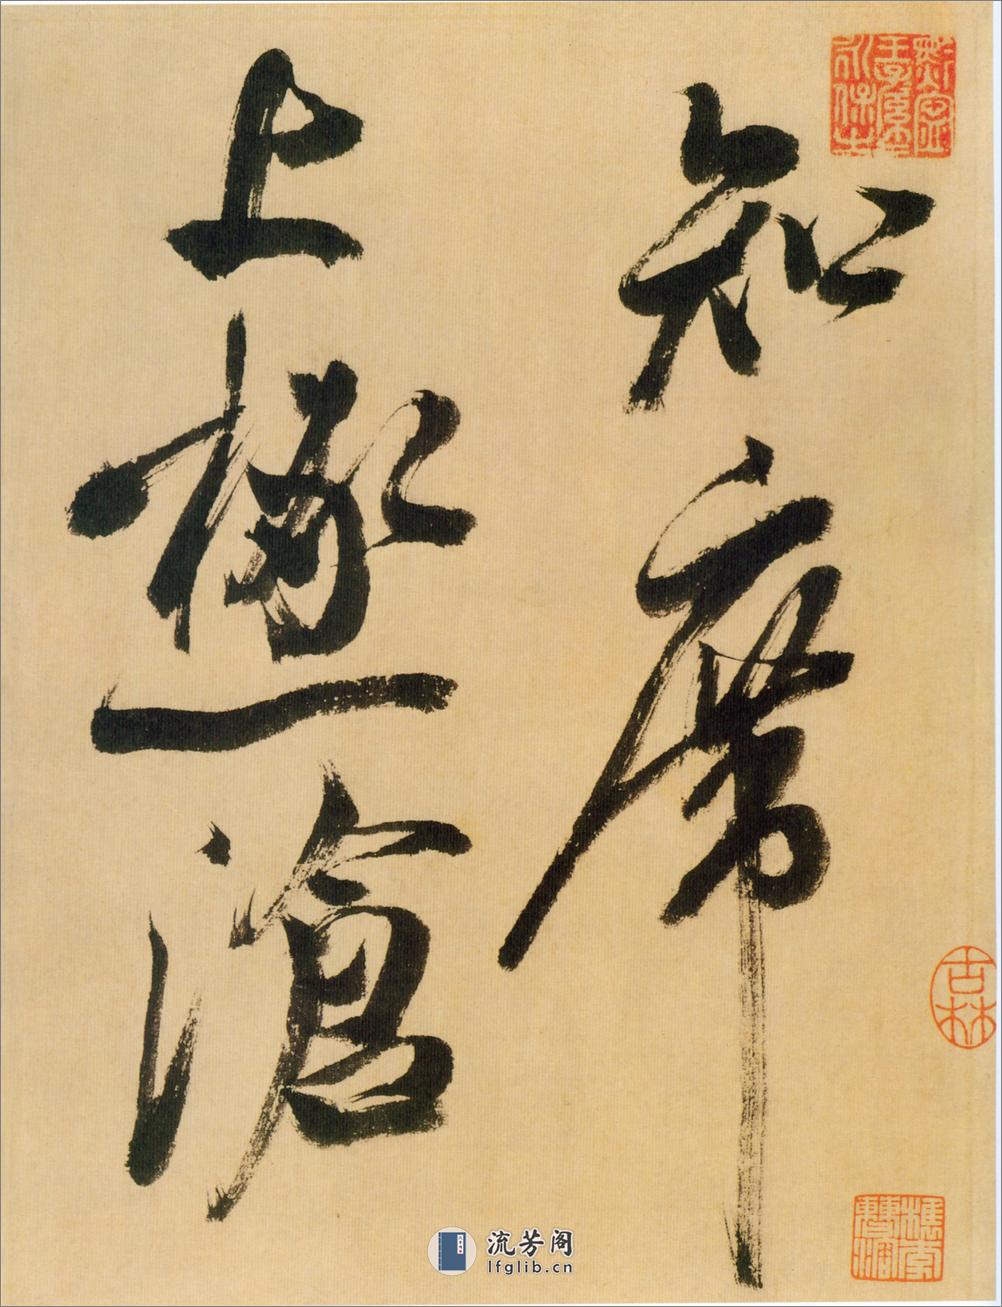 知席
上極滄
古林
樵李
流芳阁
lfglib.cn